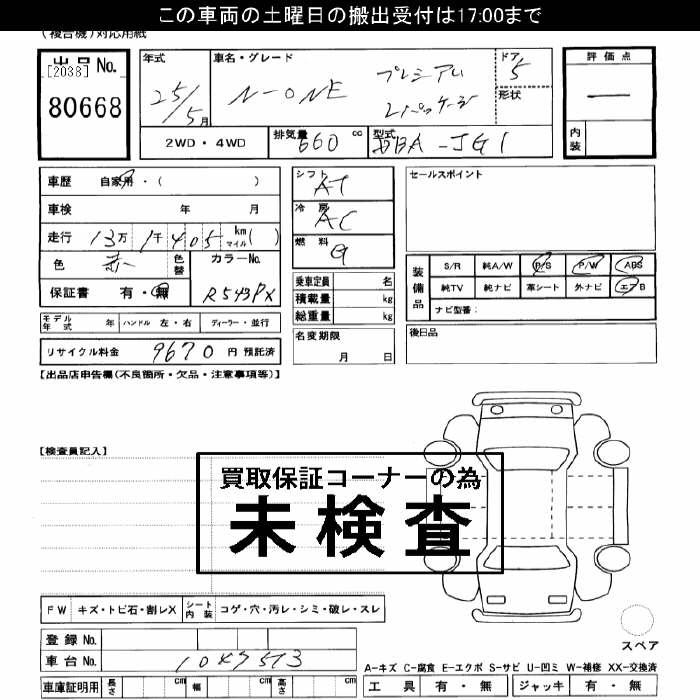 この車両の土曜日の搬出受付は17:00まで
(複合機)対応用紙
出品 No.
[2038]
80668
年式 25/5月
車名・グレード N-ONE プレミアム Lパッケージ
ドア 5
形状
評価点
内装
2WD・4WD
排気量 660 cc
型式 DBA-JG1
車歴 自家用・( )
車検 年 月
走行 13万1千405 km マイル( )
色 赤 色替 カラーNo.
保証書 有・無 R543PX
シフト AT
冷房 AC
燃料 G
乗車定員 名
積載量 kg
総重量 kg
セールスポイント
装備品
S/R 純A/W P/S P/W ABS
純TV 純ナビ 革シート 外ナビ エアB
ナビ型番:
モデル年式 年 ハンドル 左・右 ディーラー・並行
名変期限 月 日
後日品
リサイクル料金 9670 円 預託済
【出品店申告欄(不良箇所・欠品・注意事項等)】
【検査員記入】
買取保証コーナーの為
未検査
FW キズ・トビ石・割レX シート内装 コゲ・穴・汚レ・シミ・破レ・スレ
登録 No.
車台 No.
スペア
A-キズ C-腐食 E-エクボ S-サビ U-凹ミ W-補修 XX-交換済
車庫証明用 長さ cm 幅 cm 高さ cm
工具 有・無 ジャッキ 有・無